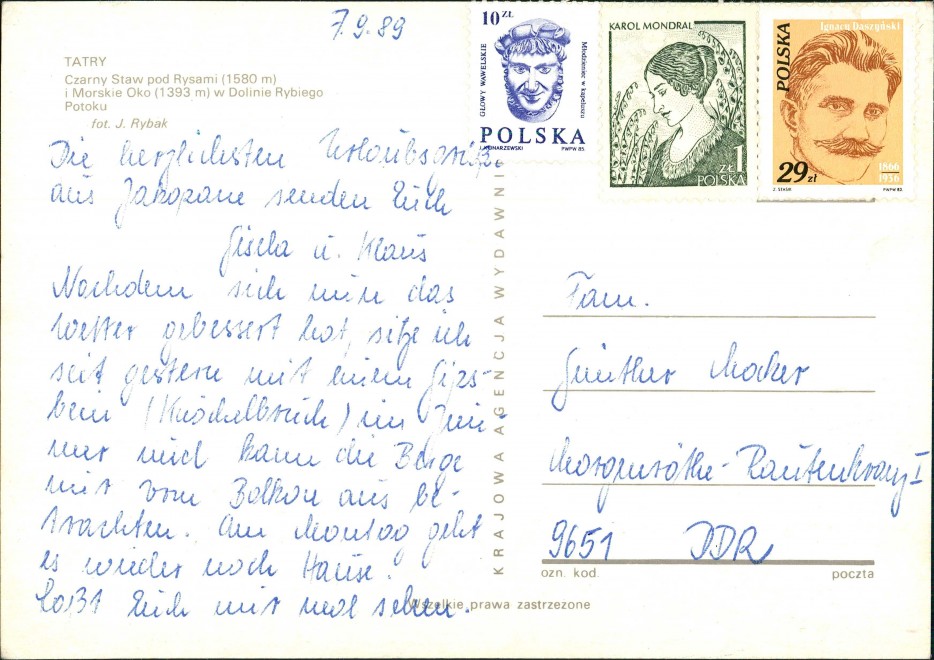 7.9.89
TATRY
Czarny Staw pod Rysami (1580 m)
i Morskie Oko (1393 m) w Dolinie Rybiego
Potoku
fot. J. Rybak
Die herzlichsten Urlaubsgrüße
aus Zakopane senden Euch
Gisela u. Klaus
Nachdem sich nun das
Wetter gebessert hat, sitze ich
seit gestern mit einem Gips-
bein (Knöchelbruch) im Zim-
mer und kann die Berge
nur vom Balkon aus be-
trachten. Am Montag geht
es wieder nach Hause.
Laßt Euch mal sehen.
KRAJOWA AGENCJA WYDAWNI
10 ZŁ
GŁOWY WAWELSKIE
Młodzieniec w kapeluszu
POLSKA
PWPW 85
KAROL MONDRAL
1 ZŁ
POLSKA
POLSKA
Ignacy Daszyński
29 zł
1866
1936
Z. STASIK
PWPW 82
Fam.
Günther
Morgenröthe-Rautenkranz I
9651 DDR
ozn. kod.
poczta
Wszelkie prawa zastrzeżone